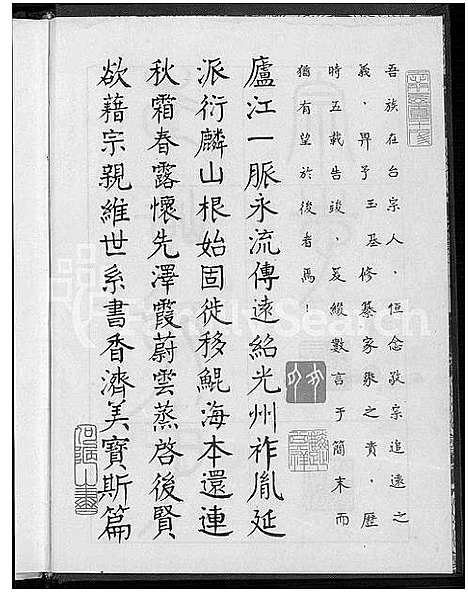 吾族在台宗人，恒念敬宗追遠之
義，畀予玉基修纂家乘之責，歷
時五載告竣，爰綴數言于簡末而
猶有望於後者焉！
廬江一脈永流傳遠紹光州祚胤延
派衍麟山根始固徙移鯤海本還連
秋霜春露懷先澤霞蔚雲蒸啓後賢
欲藉宗親維世系書香濟美寶斯篇
FamilySearch